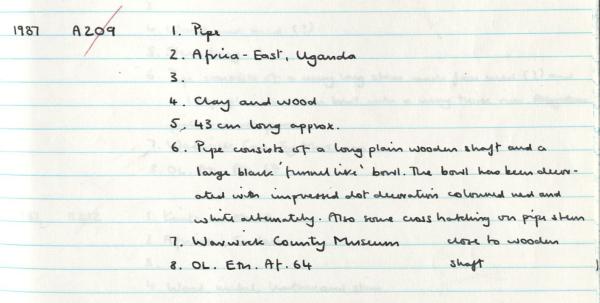 1987 A209 1. Pipe
2. Africa - East, Uganda
3.
4. Clay and wood
5. 43 cm long approx.
6. Pipe consists of a long plain wooden shaft and a
large black 'funnel like' bowl. The bowl has been decor-
ated with impressed dot decoration coloured red and
white alternately. Also some cross hatching on pipe stem
close to wooden
shaft
7. Warwick County Museum
8. OL. Eth. Af. 64